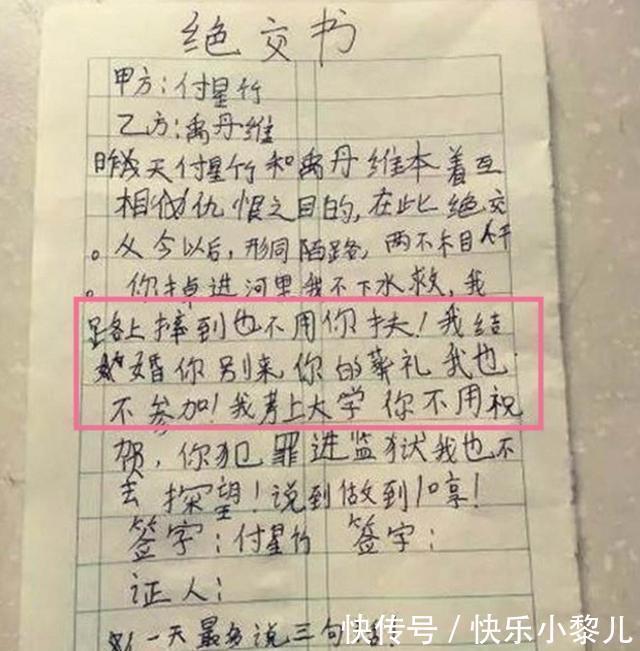 绝交书
甲方:付星竹
乙方:禹丹维
昨天付星竹和禹丹维本着互
相仇恨之目的,在此绝交
。从今以后,形同陌路,两不相干
。你掉进河里我不下水救,我
路上摔到也不用你扶!我结
婚你别来你的葬礼我也
不参加!我考上大学你不用祝
贺,你犯罪进监狱我也不
去探望!说到做到!哼!
签字:付星竹 签字:
证人:
一天最多说三句
快传号/快乐小黎儿